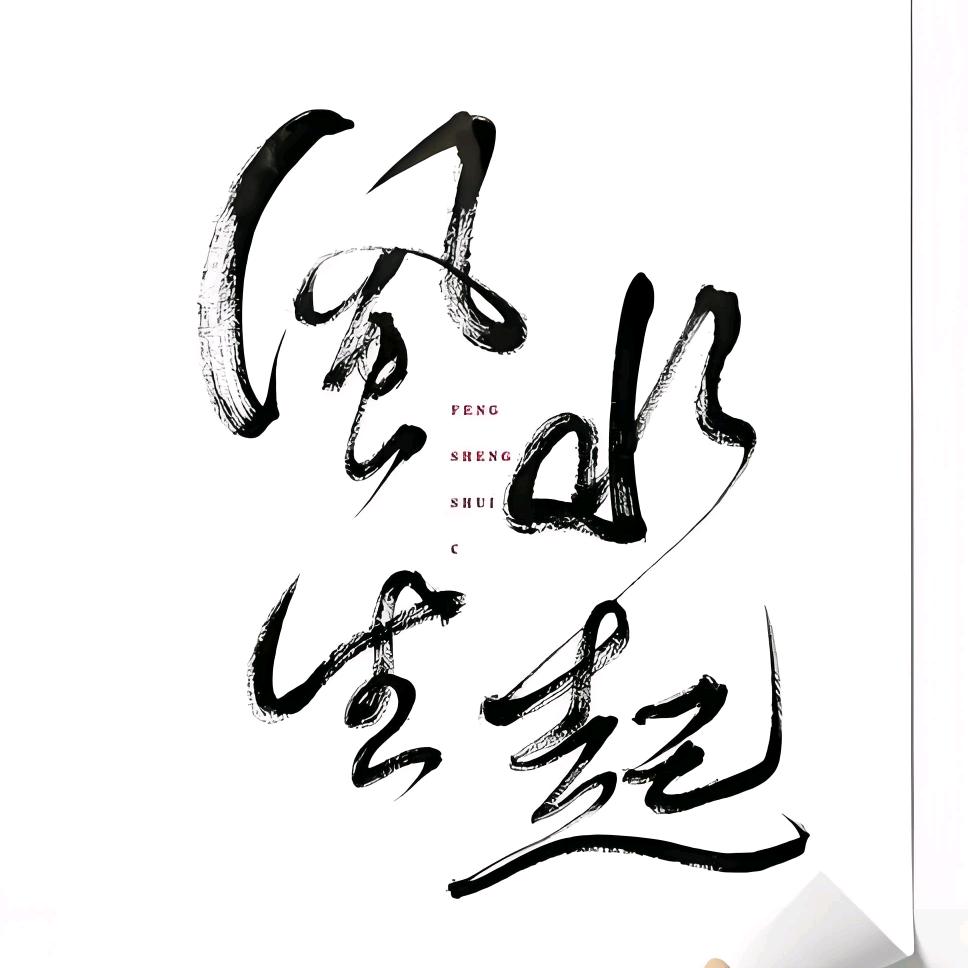 风生
水起
FENG
SHENG
SHUI